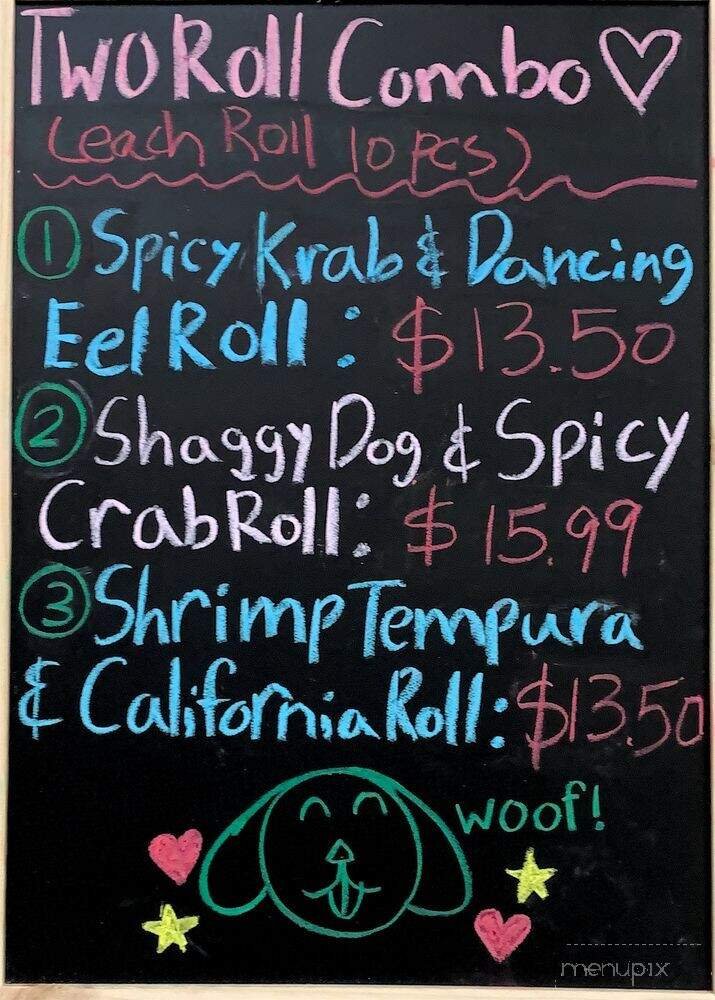 Two Roll Combo
(each Roll 10 pcs)
1 Spicy Krab & Dancing
Eel Roll : $13.50
2 Shaggy Dog & Spicy
Crab Roll : $15.99
3 Shrimp Tempura
& California Roll : $13.50
woof!
menupix